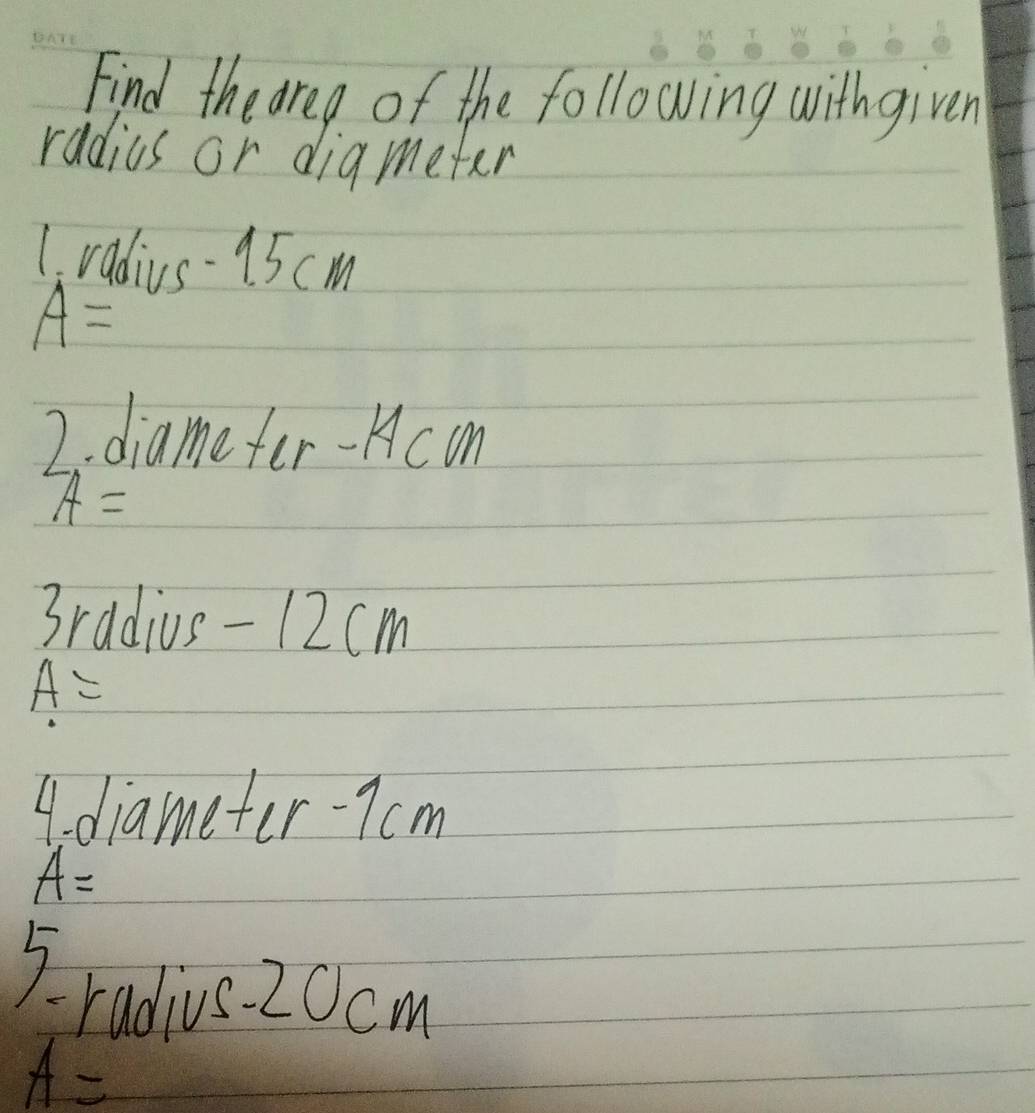 DATE S M T W T F S
Find the area of the following with given
radius or diameter
1. radius - 15 cm
A =
2. diameter - 14 cm
A =
3 radius - 12 cm
A =
4. diameter - 9 cm
A =
5 - radius - 20 cm
A =